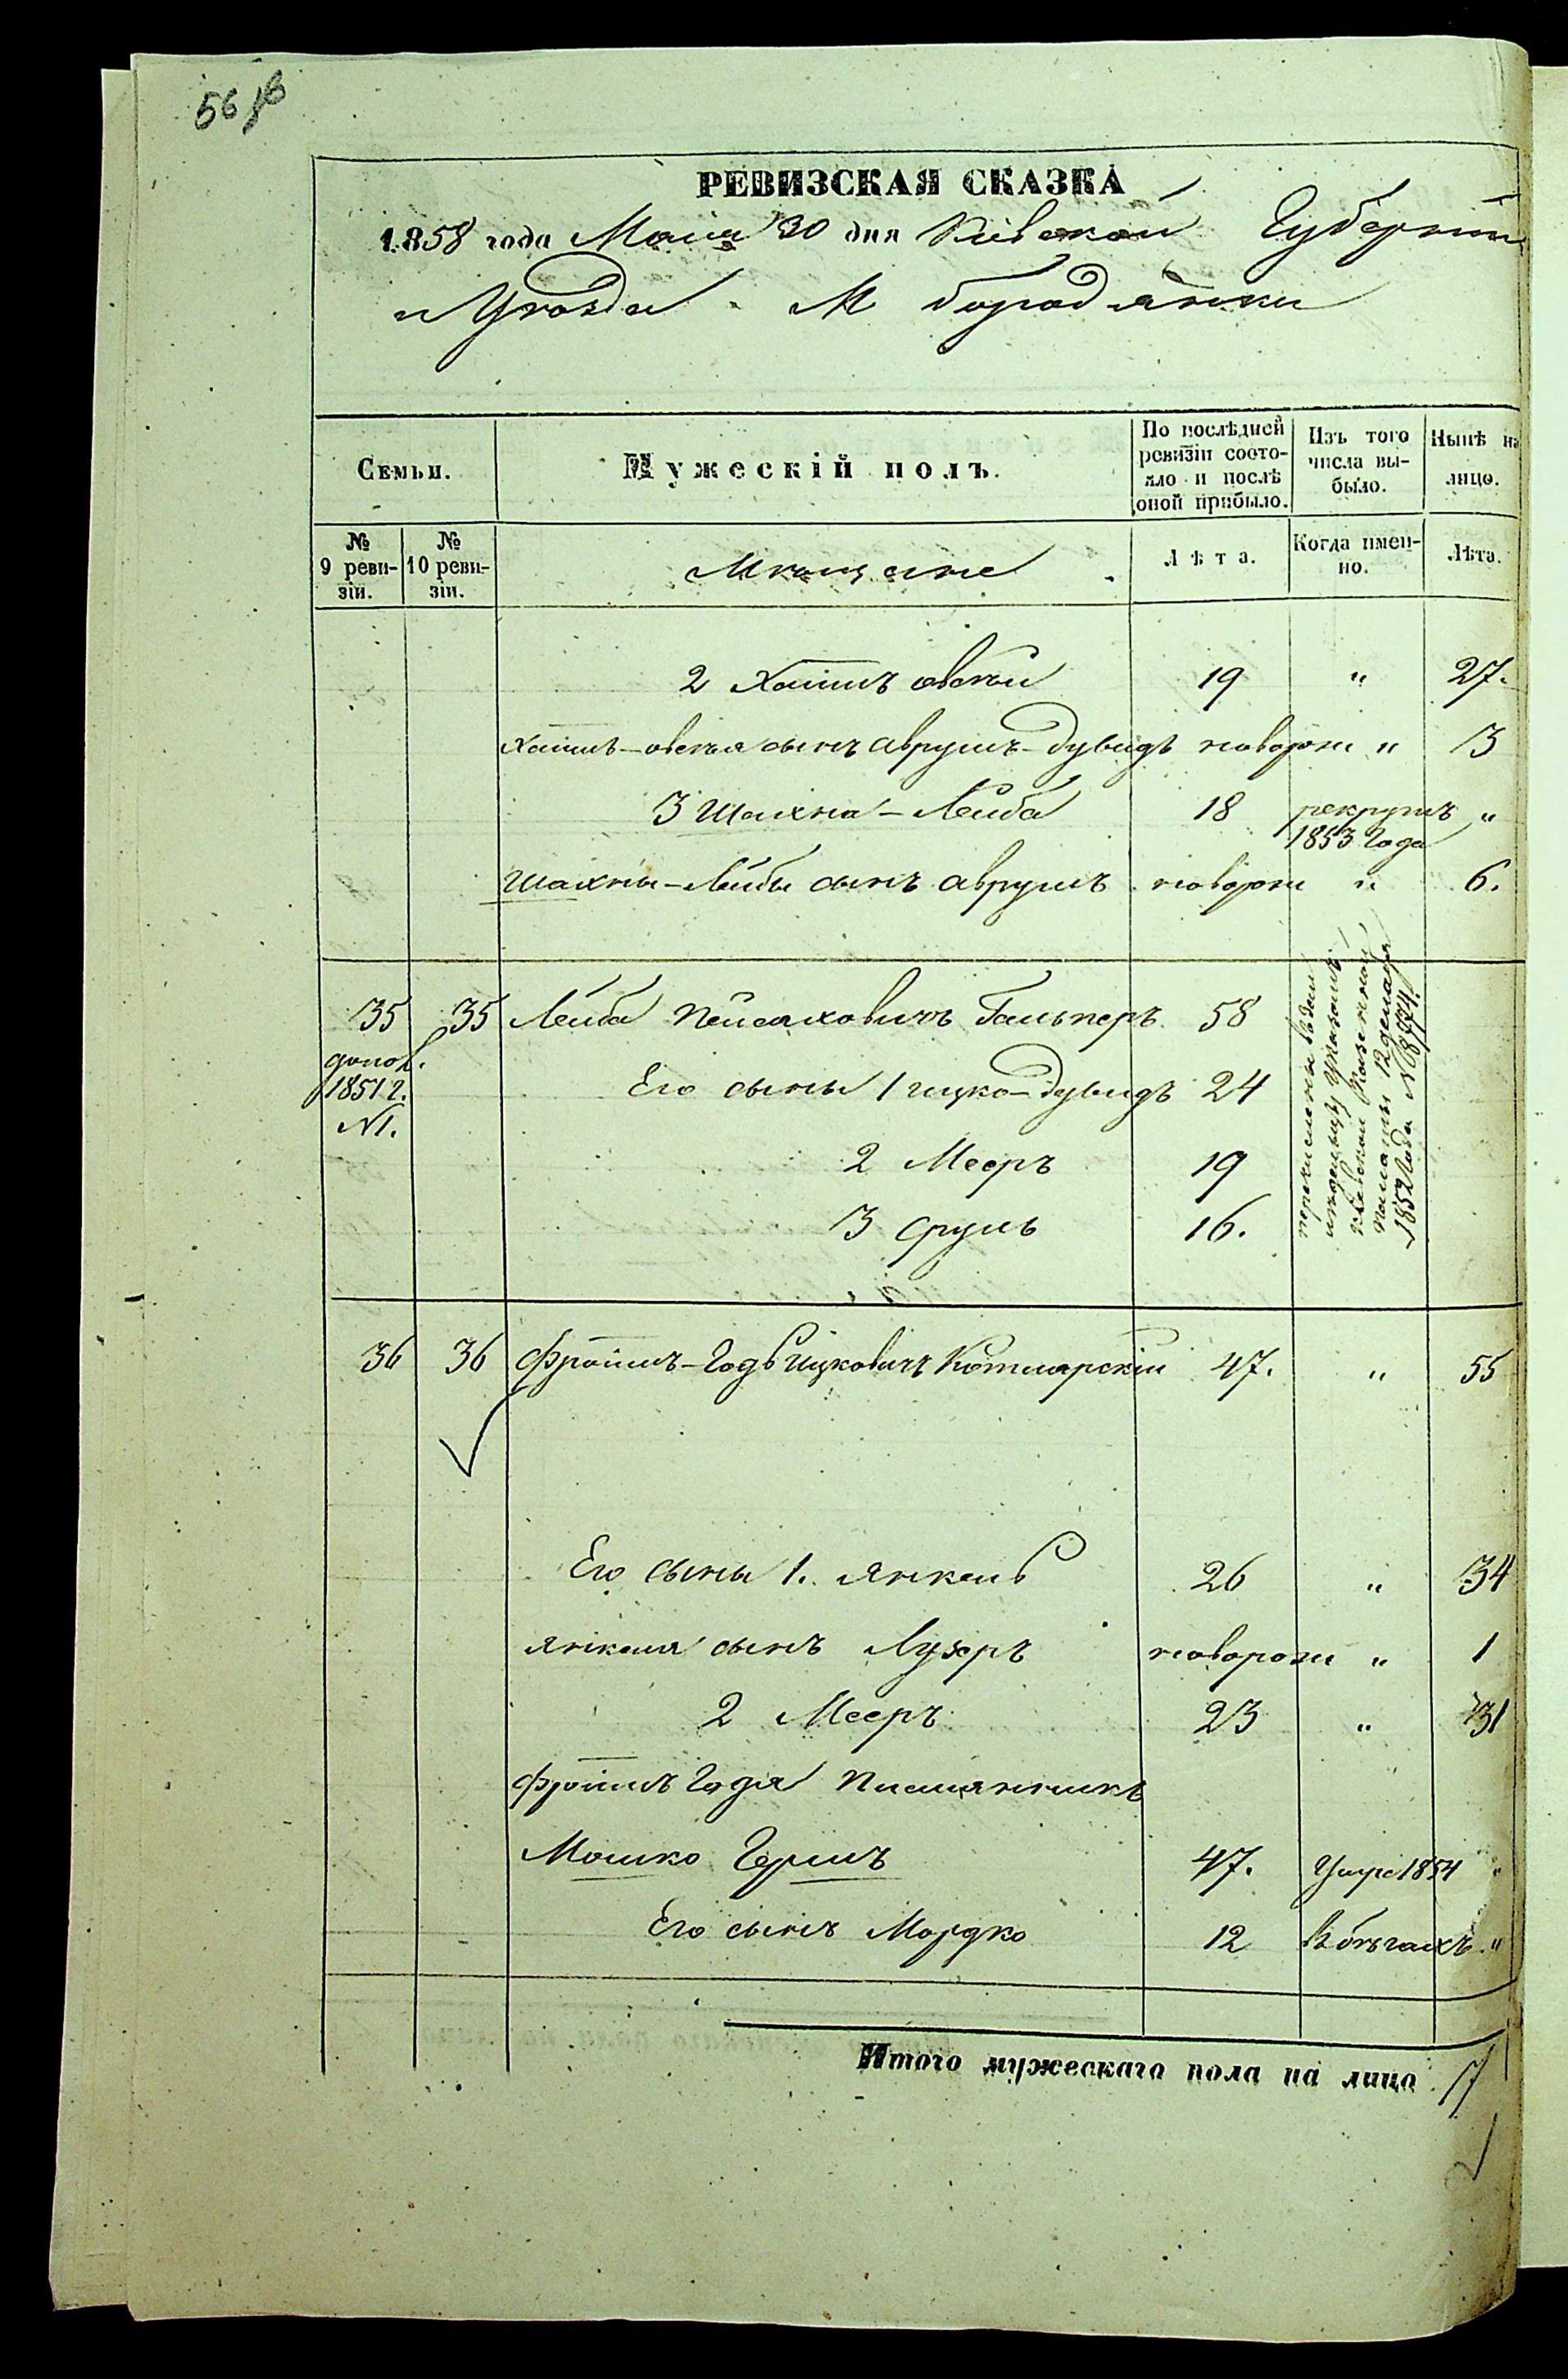 56 об
РЕВИЗСКАЯ СКАЗКА
1858 года Маія 30 дня Кіевской Губерніи
и Уѣзда М Бородянки
Семьи.
Мужескій полъ.
По послѣдней ревизіи состояло и послѣ оной прибыло.
Изъ того числа выбыло.
Нынѣ на лицо.
№ 9 ревизіи.
№ 10 ревизіи.
Мѣщане
Лѣта.
Когда именно.
Лѣта.
2 Хаимъ овсѣй 19 " 27.
Хаимъ-овсѣя сынъ Аврумъ-Дувидъ новорож " 3
3 Шахна-Лейба 18 рекрутъ 1853 года "
Шахны-Лейбы сынъ Аврумъ новорож " 6.
35 35 Лейба Пейсаховичъ Гальперъ 58
допол. 1851 г. №1.
Его сыны 1 ицко-Дувидъ 24
2 Мееръ 19
3 Сруль 16.
перечислены
указомъ
Кіевской Казенной
Палаты 12 декабря
1852 года № 8774.
36 36 Фроимъ-Годь Ицковичъ Котлярскій 47. " 55
Его сыны 1. Янкель 26 " 34
Янкеля сынъ Лузеръ новорож " 1
2 Мееръ 23 " 31
Фроимъ Годя племянникъ
Мошко Гершъ 47. Умре 1854 "
Его сынъ Мордко 12 В бѣгахъ "
Итого мужескаго пола на лицо 7